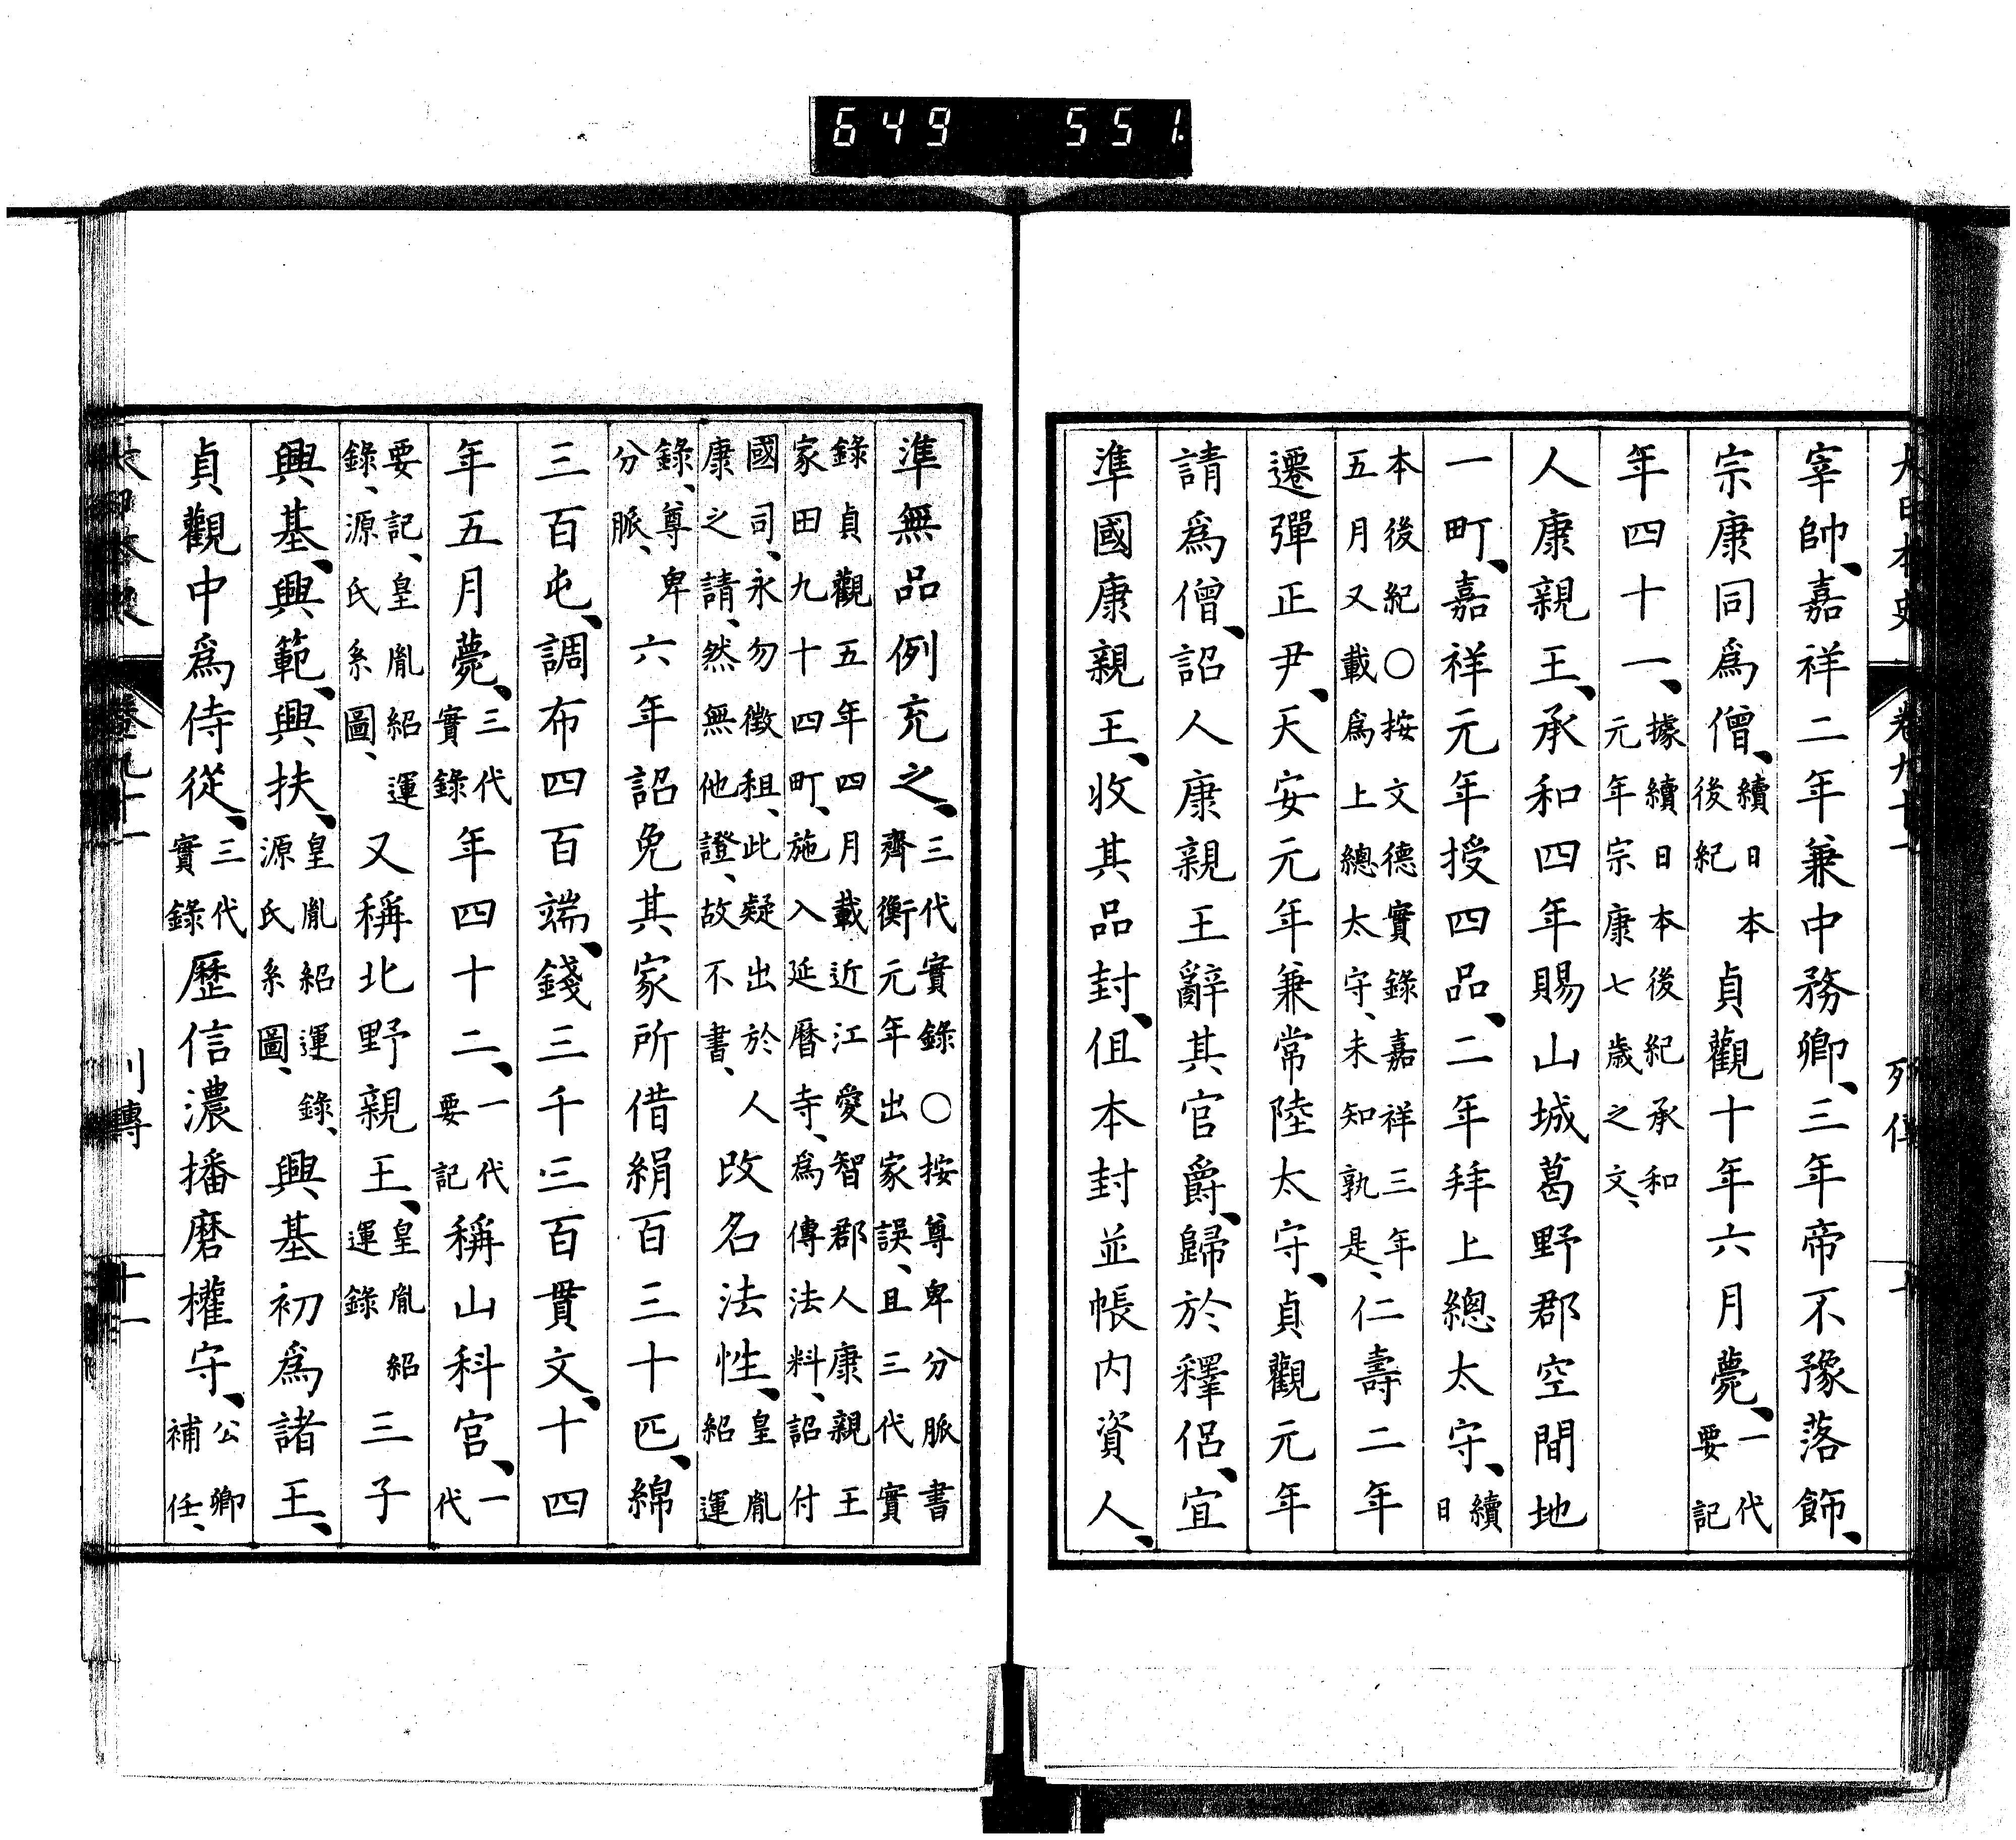 649 551.
大日本史 卷九十一 列傳 十
宰帥、嘉祥二年兼中務卿、三年帝不豫落飾、
宗康同爲僧、續日本後紀貞觀十年六月薨、一代要記
年四十一、據續日本後紀承和元年宗康七歲之文、
人康親王、承和四年賜山城葛野郡空閒地
一町、嘉祥元年授四品、二年拜上總太守、續日
本後紀○按文德實錄嘉祥三年五月又載爲上總太守、未知孰是、仁壽二年
遷彈正尹、天安元年兼常陸太守、貞觀元年
請爲僧、詔人康親王辭其官爵、歸於釋侶、宜
準國康親王、收其品封、但本封並帳內資人、
準無品例充之、三代實錄○按尊卑分脈書齊衡元年出家誤、且三代實
錄貞觀五年四月載近江愛智郡人康親王家田九十四町、施入延曆寺、爲傳法料、詔付
國司、永勿徵租、此疑出於人康之請、然無他證、故不書、改名法性、皇胤紹運
錄、尊卑分脈、六年詔免其家所借絹百三十匹、綿
三百屯、調布四百端、錢三千三百貫文、十四
年五月薨、三代實錄年四十二、一代要記稱山科宮、一代
要記、皇胤紹運錄、源氏系圖、又稱北野親王、皇胤紹運錄三子
興基、興範、興扶、皇胤紹運錄、源氏系圖、興基初爲諸王、
貞觀中爲侍從、三代實錄歷信濃播磨權守、公卿補任、
卷九十一 列傳 十一